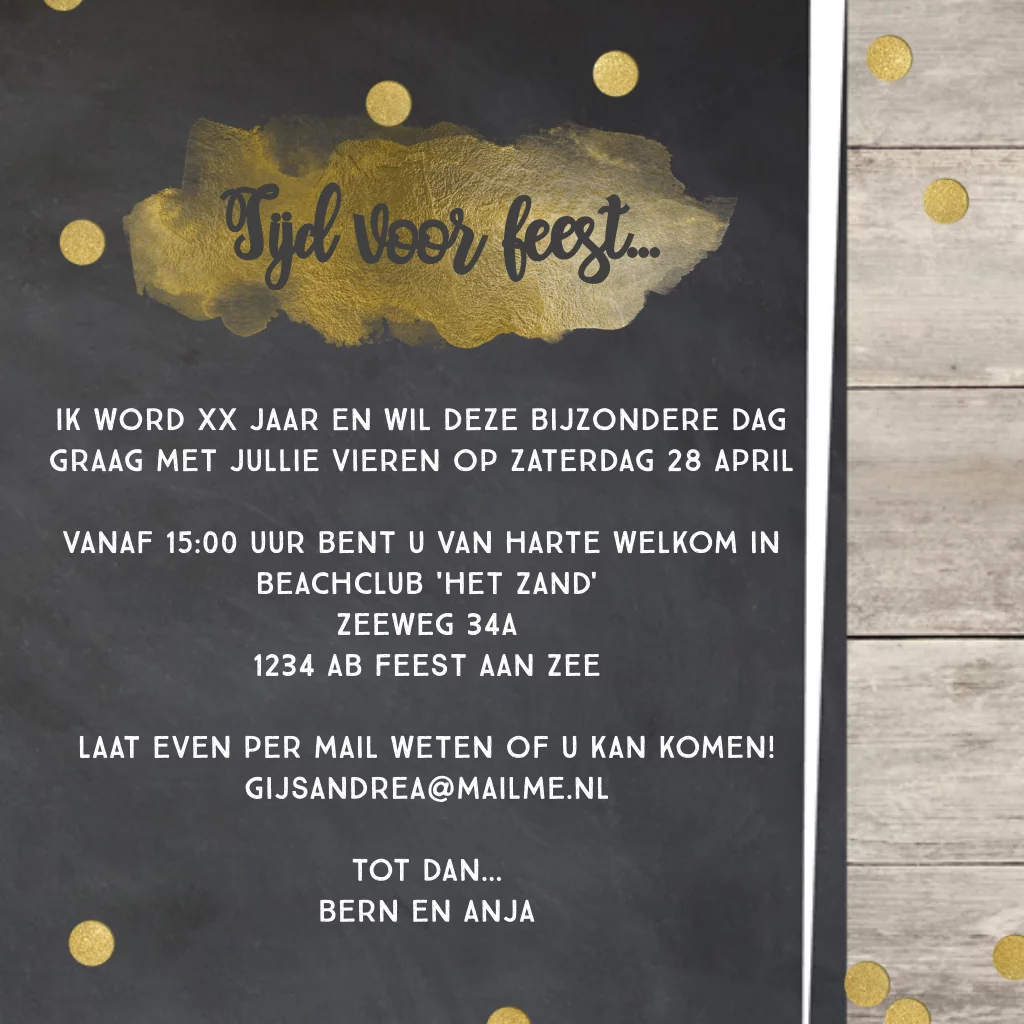 Tijd voor feest...
IK WORD XX JAAR EN WIL DEZE BIJZONDERE DAG
GRAAG MET JULLIE VIEREN OP ZATERDAG 28 APRIL
VANAF 15:00 UUR BENT U VAN HARTE WELKOM IN
BEACHCLUB 'HET ZAND'
ZEEWEG 34A
1234 AB FEEST AAN ZEE
LAAT EVEN PER MAIL WETEN OF U KAN KOMEN!
GIJSANDREA@MAILME.NL
TOT DAN...
BERN EN ANJA